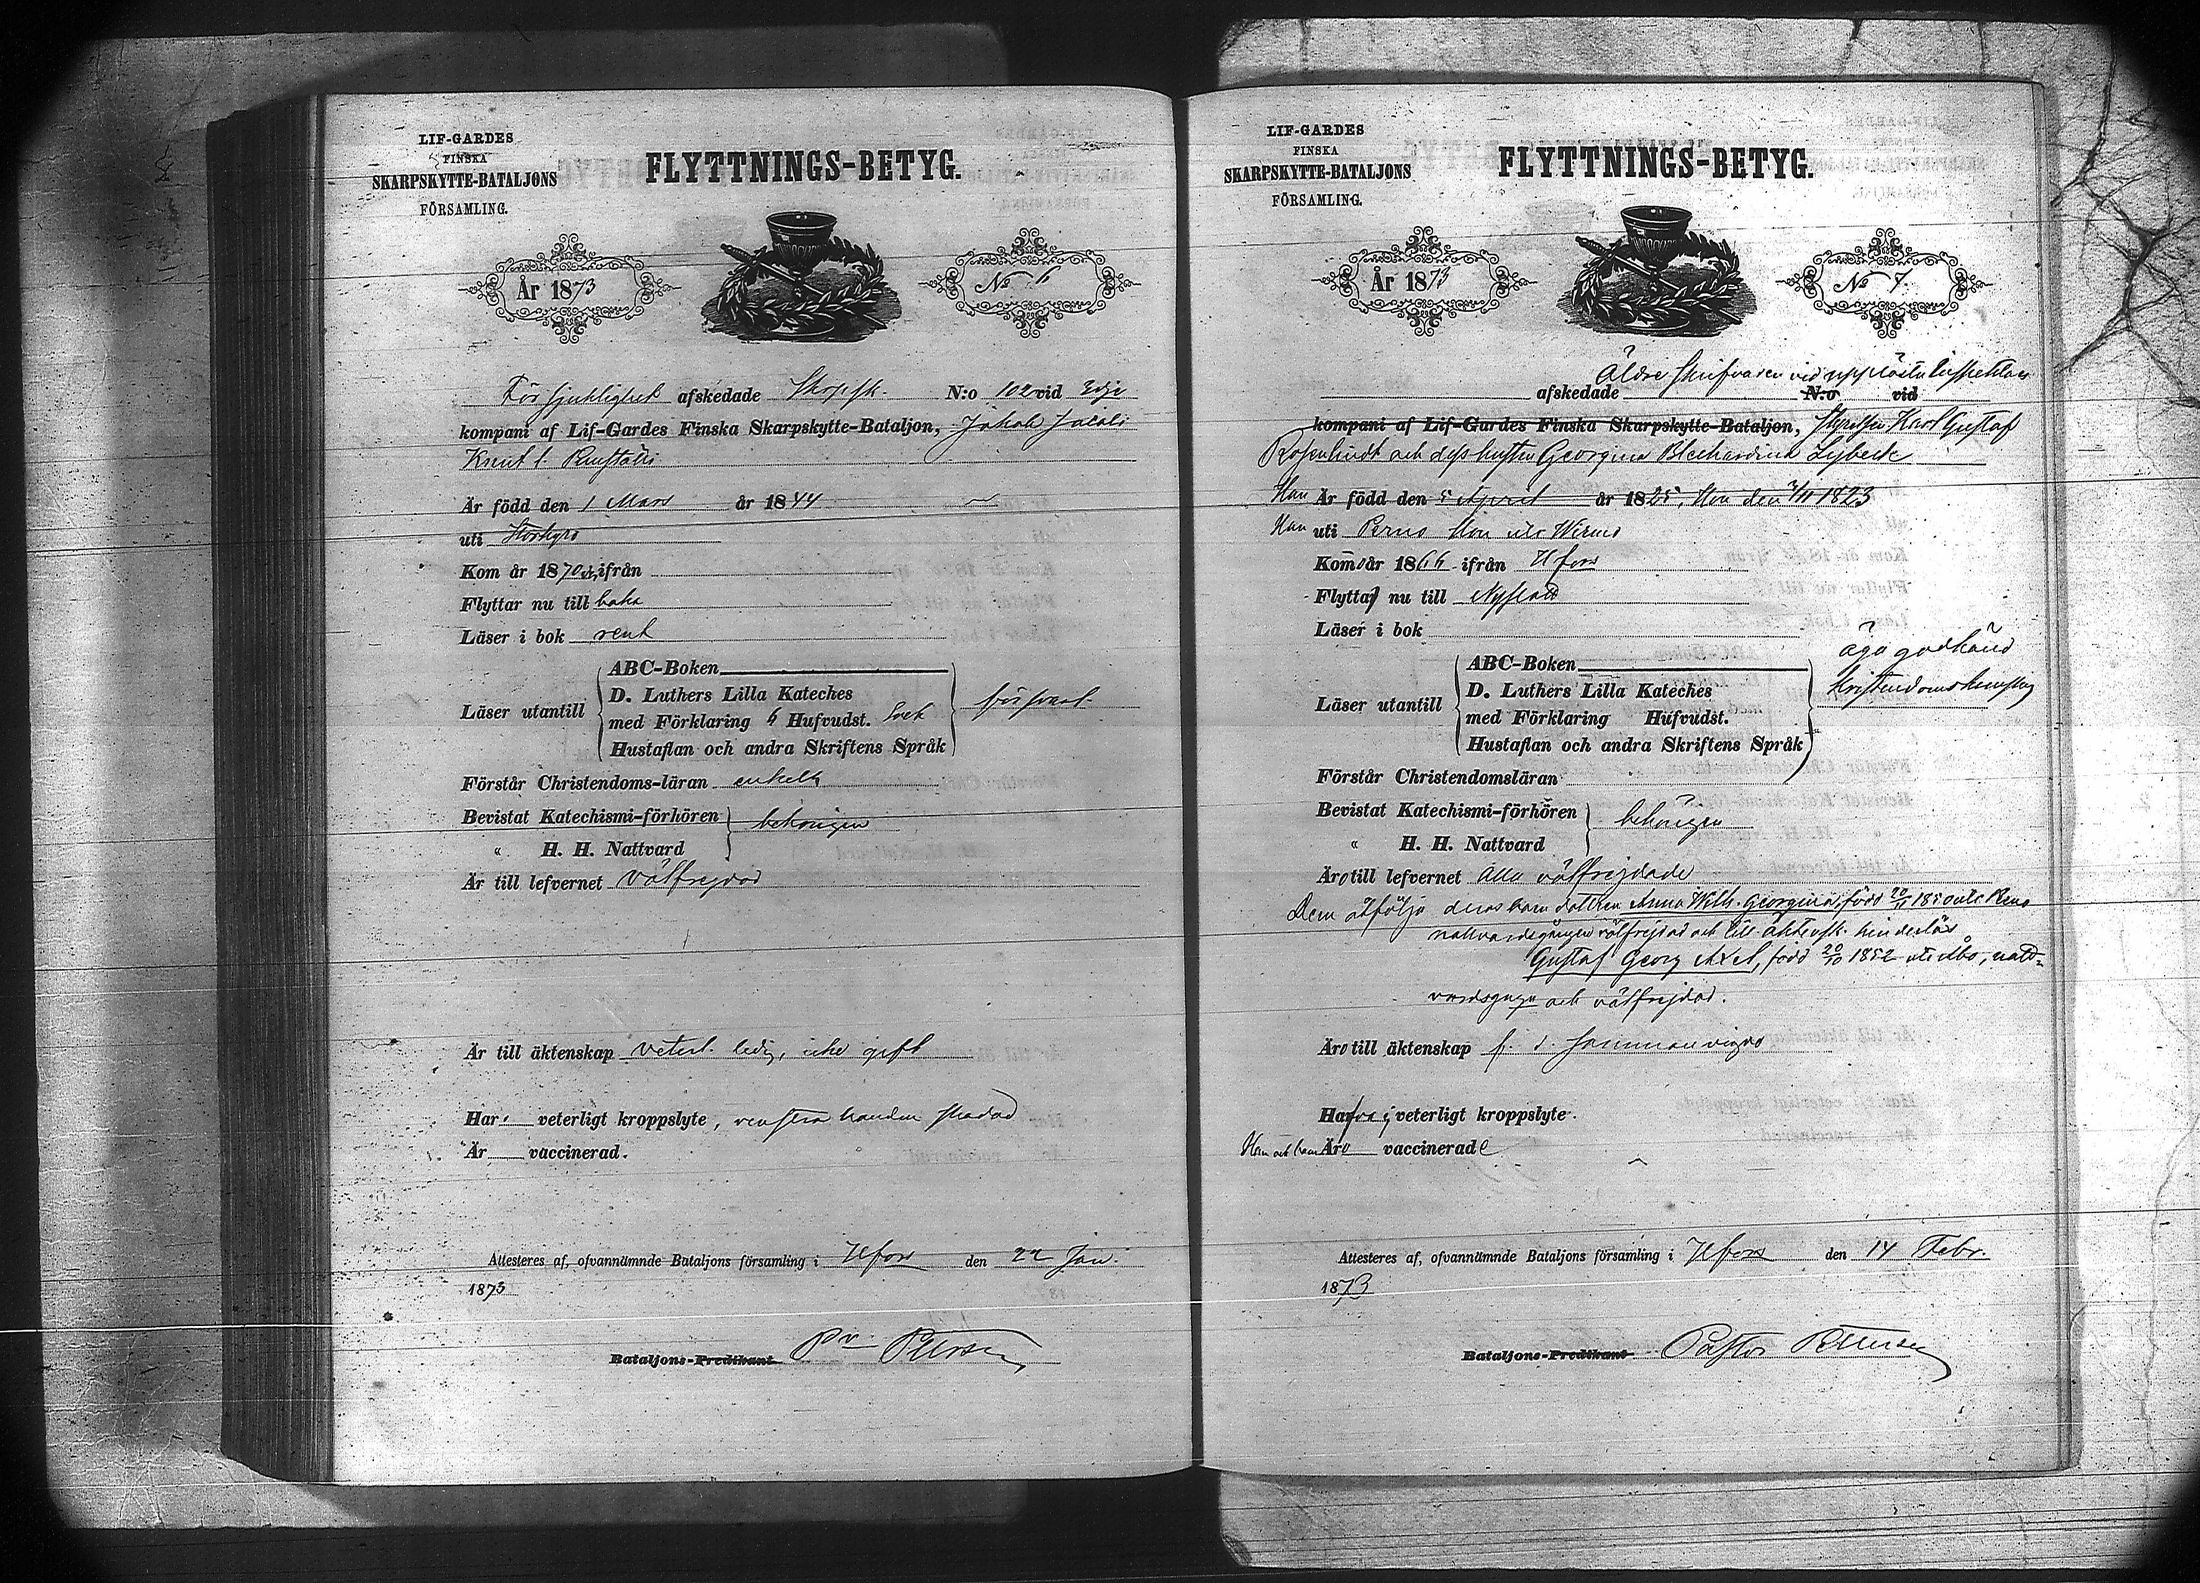 LIF-GARDES
FINSKA
SKARPSKYTTE-BATALJONS
FÖRSAMLING.
FLYTTNINGS-BETYG.
År 1873
No 6
För sjuklighet afskedade Skarpsk. N:o 102 vid 3dje
kompani af Lif-Gardes Finska Skarpskytte-Bataljon, Jakob Jacobs
Knut l.
Är född den 1 Mars år 1844
uti Storkyro
Kom år 1870 ifrån
Flyttar nu till baka
Läser i bok rent
Läser utantill
ABC-Boken
D. Luthers Lilla Kateches
med Förklaring 4 Hufvudst.
Hustaflan och andra Skriftens Språk
försvarl.
Förstår Christendoms-läran enkelt
Bevistat Katechismi-förhören
" H. H. Nattvard
behörigen
Är till lefvernet välfrejdad
Är till äktenskap veterl. ledig, icke gift
Har veterligt kroppslyte, venstra handen skadad
Är vaccinerad.
Attesteres af, ofvannämnde Bataljons församling i Hfors den 22 Jan.
1873
Bataljons-Predikant Petersen
LIF-GARDES
FINSKA
SKARPSKYTTE-BATALJONS
FÖRSAMLING.
FLYTTNINGS-BETYG.
År 1873
No 7.
Äldre Skrifvaren vid upplösta
afskedade N:o vid
kompani af Lif-Gardes Finska Skarpskytte-Bataljon, Karl Gustaf
Rosenlindt och dess hustru Georgina
Han Är född den 5 April år 1825, Hon den 4/11 1823
Han uti Perno Hon uti Wirmo
Komo år 1866 ifrån Hfors
Flytta nu till Nystad
Läser i bok
Läser utantill
ABC-Boken
D. Luthers Lilla Kateches
med Förklaring Hufvudst.
Hustaflan och andra Skriftens Språk
äga godkänd
kristendomskunskap
Förstår Christendomsläran
Bevistat Katechismi-förhören
" H. H. Nattvard
behörigen
Äro till lefvernet alla välfrejdade
Dem åtfölja deras barn dottren Anna Wilh. Georgina, född 1850 uti
nattvardsgången välfrejdad och till äktensk. hinderlös
Gustaf Georg Axel, född 20/10 1852 uti Åbo, natt-
vardsgången och välfrejdad.
Äro till äktenskap f. d. sammanvigde
Hafva ej veterligt kroppslyte.
Han och barn Äro vaccinerade
Attesteres af, ofvannämnde Bataljons församling i Hfors den 14 Febr.
1873
Bataljons-Predikant Pastor Petersen